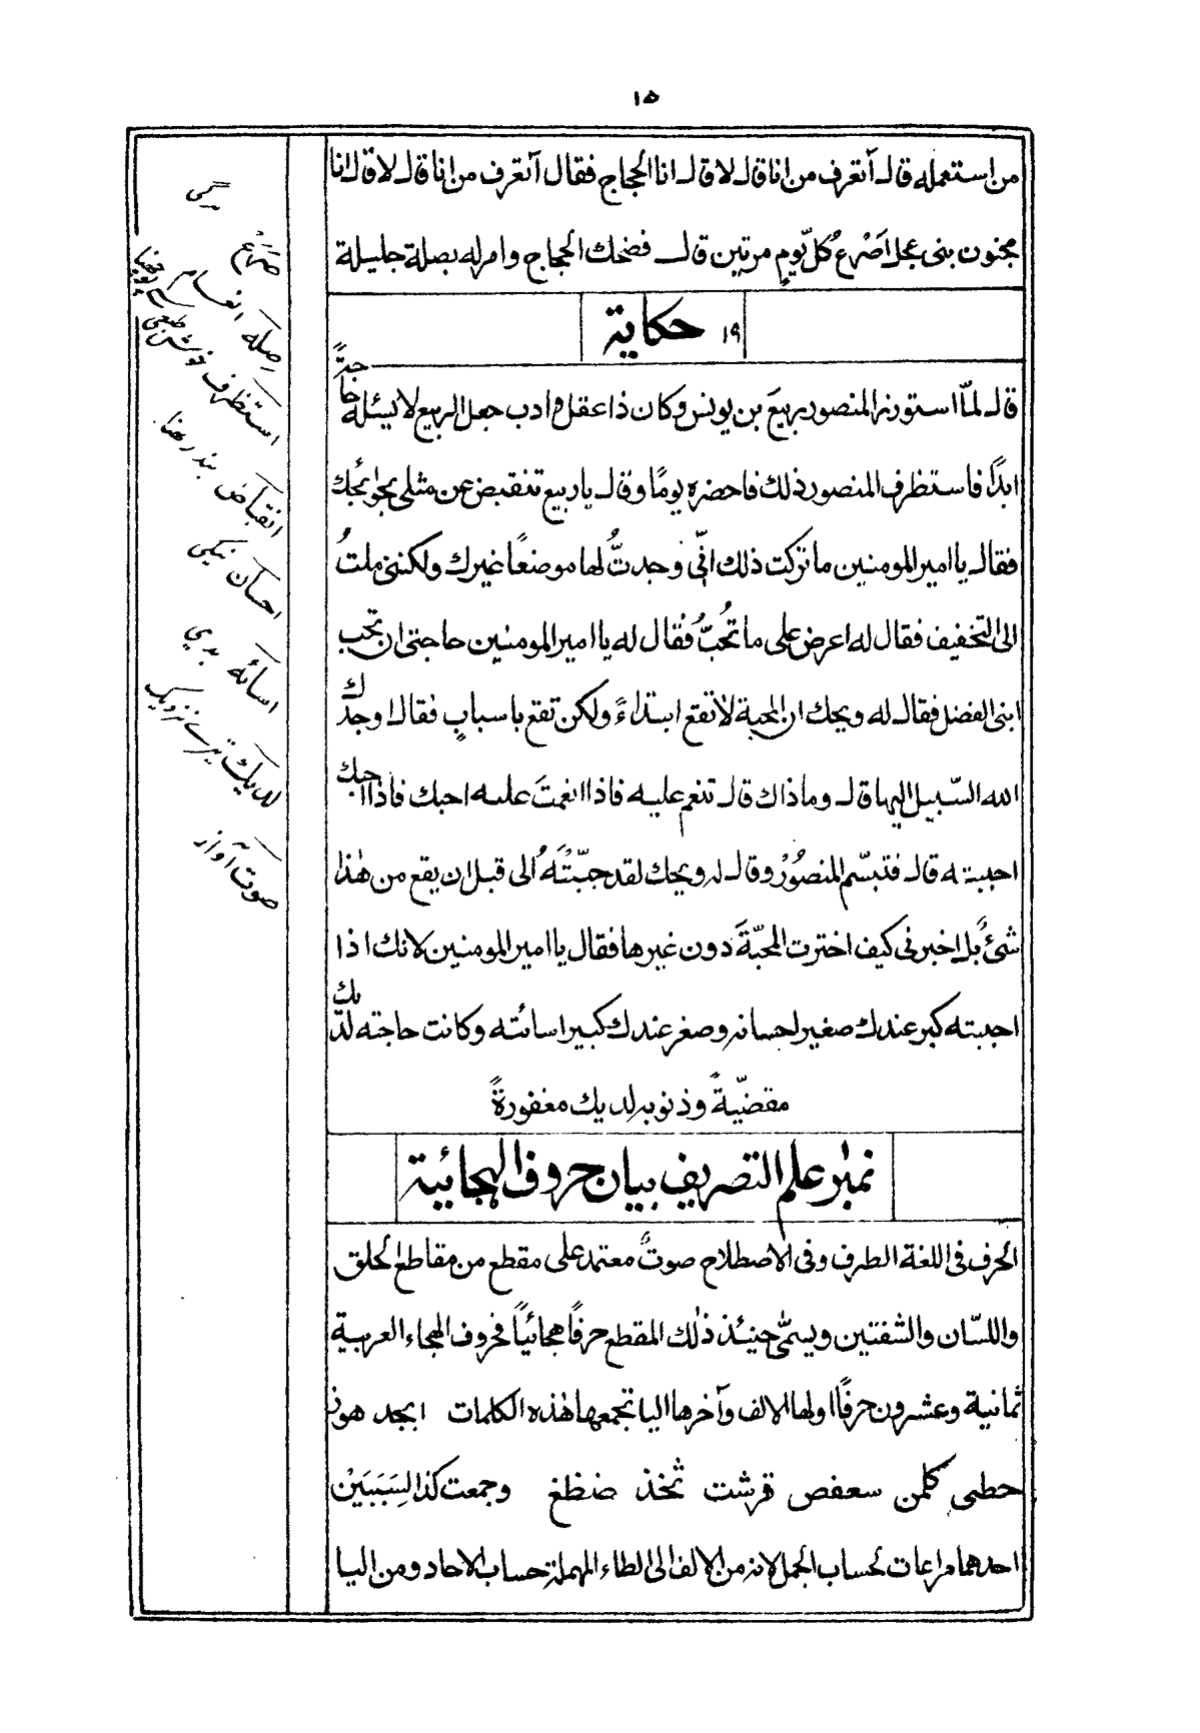 ١٥
من استعمله قال أتعرف من انا قال لا قال انا الحجاج فقال أتعرف من انا قال لا قال انا
مجنون بنى عجل اَصْرعُ كُلّ يَومٍ مرتين قال فضحك الحجاج وامر له بصلة جليلة
١٩ حكاية
قال لمّا استوزر المنصور بربيعَ بن يونس وكان ذا عقل و ادب جعل الربيع لا يسئله حاجةً
ابدًا فاستظرف المنصور ذلك فاحضره يومًا وقال يا ربيع تنقبض عن مثلى بحوائجك
فقال يا امير المومنين ما تركت ذلك انّى وجدتُّ لها موضعًا غيرك ولكننى ملتُ
الى التخفيف فقال له اعرض على ما تُحبُّ فقال له يا امير المومنين حاجتى ان تحب
ابنى الفضل فقال له ويحك ان المحبة لا تقع ابتداءً ولكن تقع باسبابٍ فقال اوجدك
الله السّبيل اليها قال وما ذاك قال تنعم عليه فاذا انعمتَ عليه احبك فاذا احبك
احببته قال فتبسّم المنصُورُ وقال له ويحك لقد حبّبْتَهُ الى قبل ان يقع من هٰذا
شئٌ بل اخبرنى كيف اخترت المحبّةَ دون غيرها فقال يا امير المومنين لانك اذا
احببته كبر عندك صغير احسانه وصغر عندك كبير اسائته وكانت حاجته لديك
مقضيّةً وذنوبه لديك مغفورةً
نمبر١ علم التصريف بيان حروف الهجائية
الحرف فى اللغة الطرف وفى الاصطلاح صوتٌ معتمد على مقطع من مقاطع الحلق
واللسّان والشفتين ويسمّٰى حينئذ ذلك المقطع حرفًا هجائيًا فحروف الهجاء العربية
ثمانية وعشرون حرفًا اولها الالف وآخرها اليا تجمعها هٰذه الكلمات ابجد هوز
حطى كلمن سعفص قرشت ثخذ ضظغ وجمعت كذا لسَبَبَيْن
احدهما مراعات لحساب الجمل لانه من الالف الى الطاء المهملة حساب الاحاد ومن اليا
صَرَعْ مرگى
صِلَه انعام
استظراف خوش طبعى
انقباض بند رهنا
احسان نيكى
اسائه بدي
لديك تيرے نزديك
صوت آواز